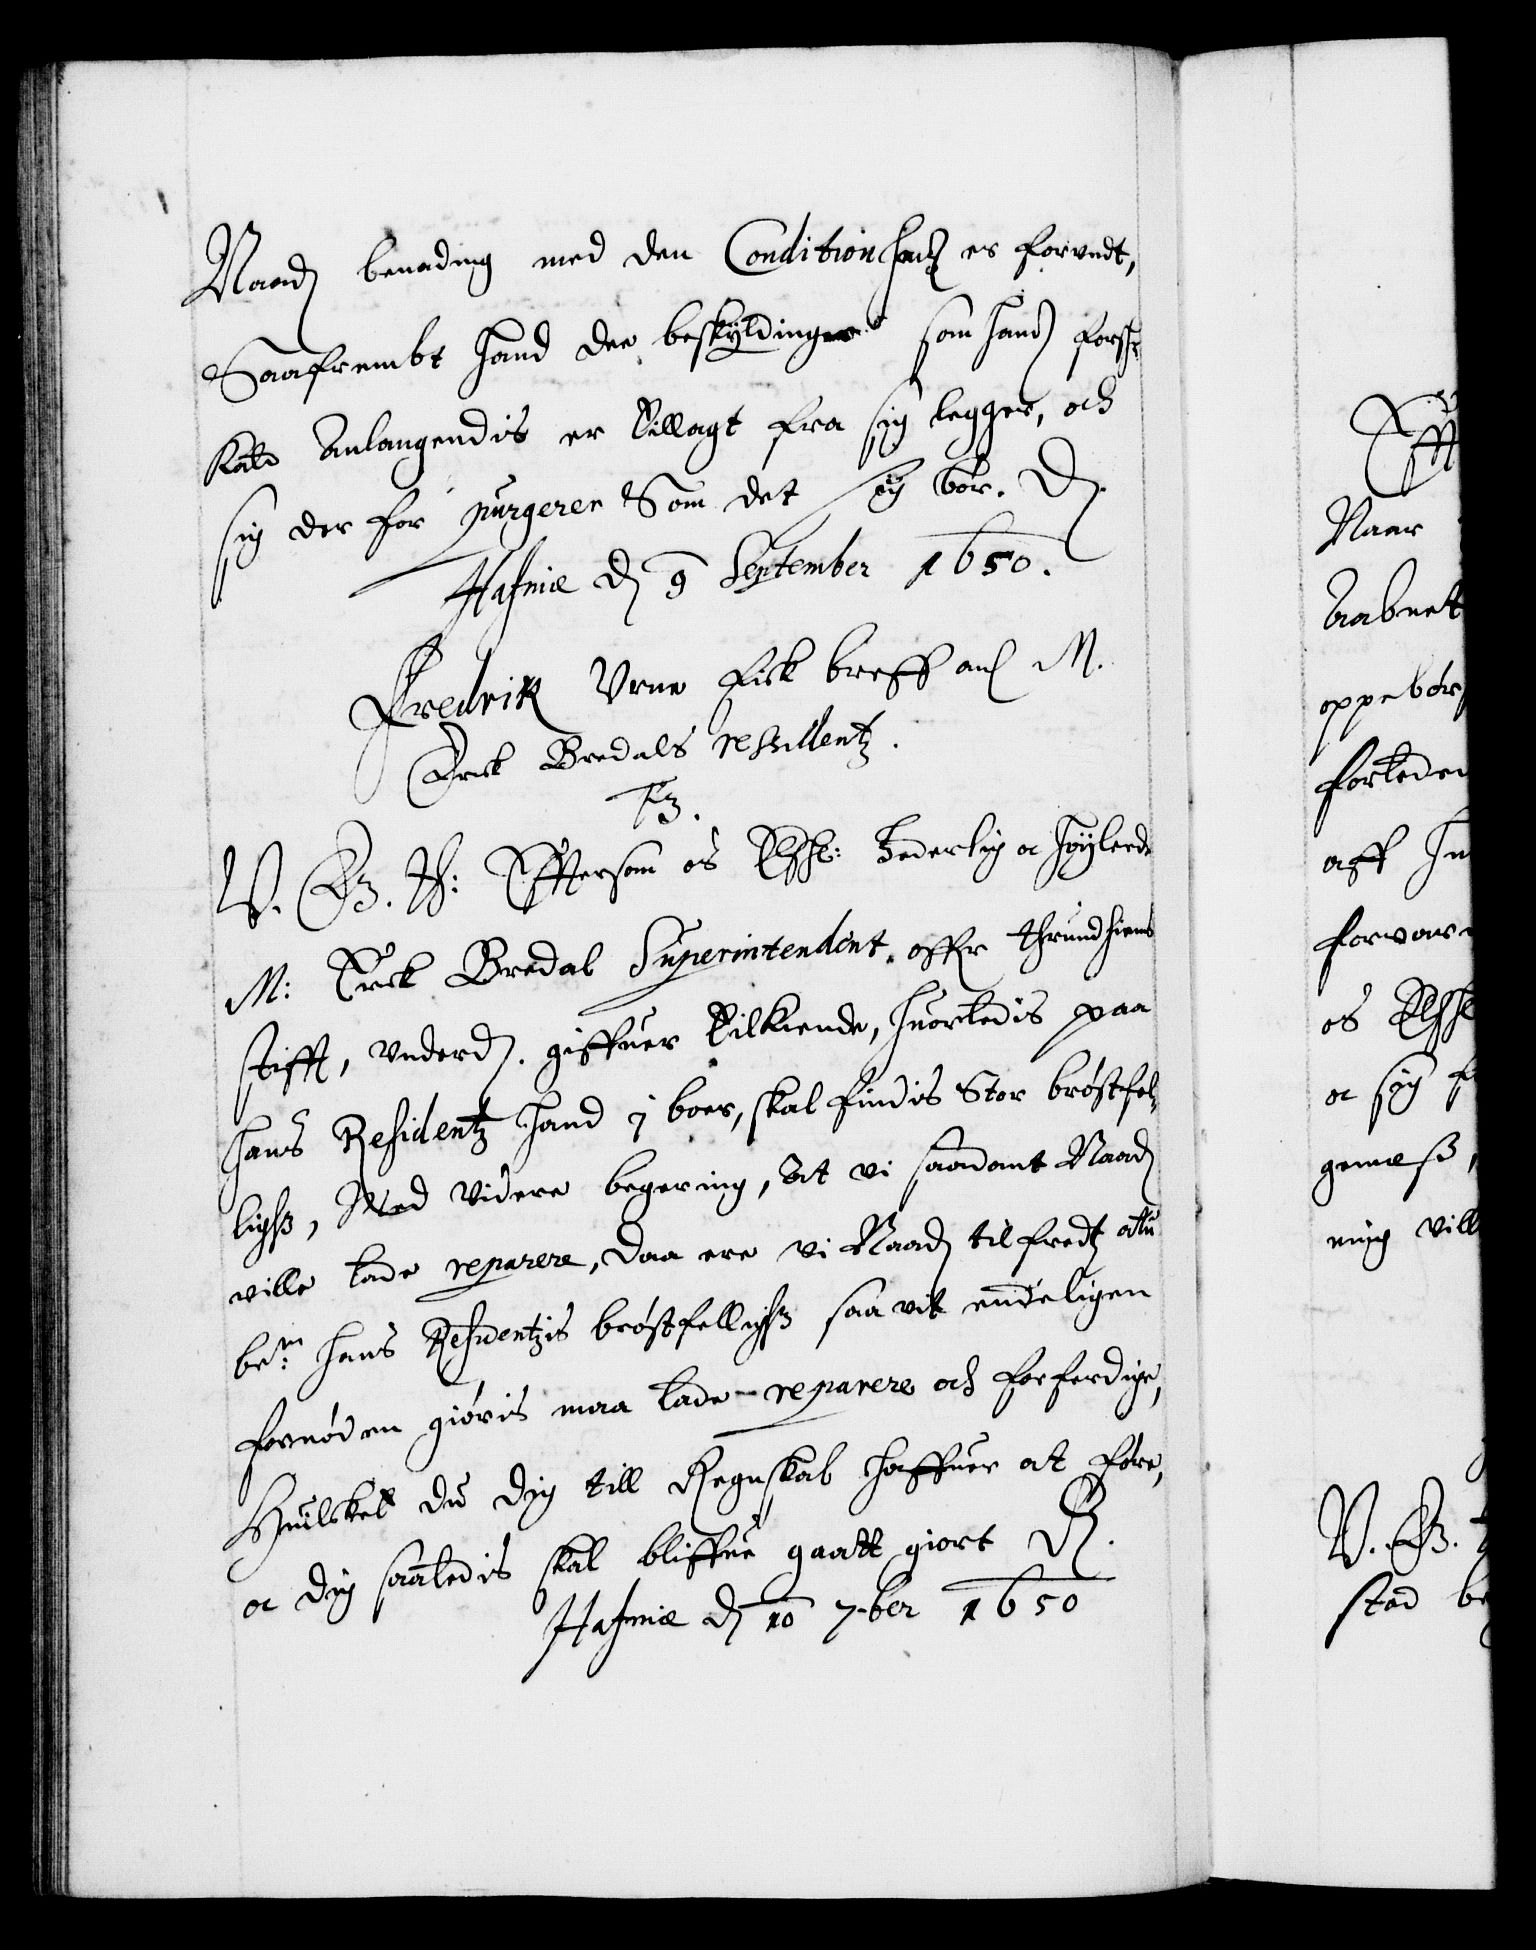 Naad benading med den Condition hand er forundt,
Saafrembt hand dee beskyldinger som hand forsk
anlangendis er tillagt fra sig legger, och
sig der for purgerer Som det sig bör. D
Hafniæ D 9 September 1650.
Fredrik Urne fick breff anl M.
Erick Bredals residentz.
F3.
V. G. T: Effttersom os Elsshl: hederlig oc höylerde
M: Erick Bredal Superintendent offr Thrundhiems
stifft, underd. giffuer tilkiende, huorledis paa
hans Residentz hand i boer, skal findis Stor bröstfel
lighz, Med videre begering, At vi saadant Naad
ville lade reparere, daa ere vi Naad tilfredtz att du
bem: hans Residentzis bröstfellighz saa vit endeligen
fornöden giöris maa lade reparere och forferdige,
Huilcket du dig till Regnskab haffuer at före,
oc dig saaledis skal bliffue gaatt giort D.
Hafniæ D 10 7-ber 1650
Naar
Aabnet
oppebör
forleden
aff
os Elsshl
oc sig
gemess,
ning vill
V. G. T
sted be